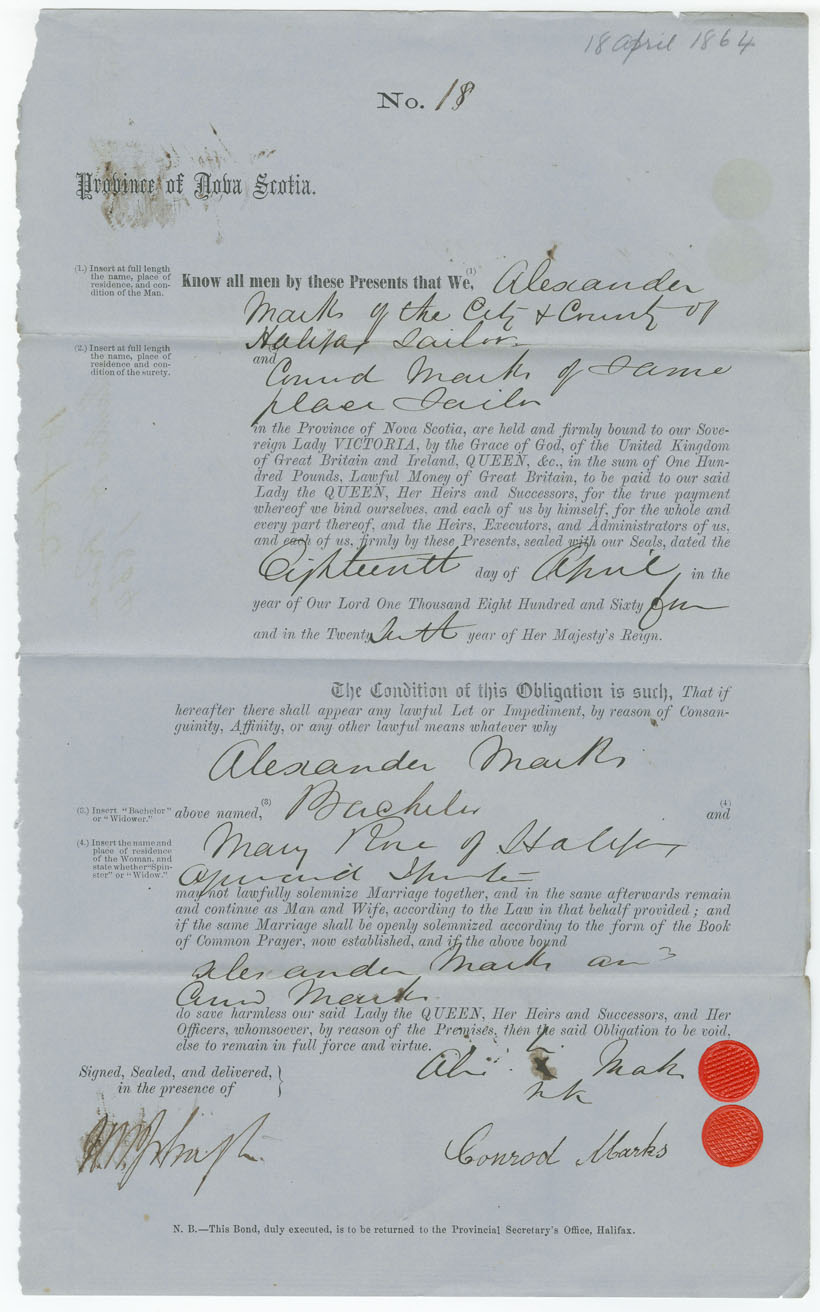 18 April 1864
No. 18
Province of Nova Scotia.
(1.) Insert at full length
the name, place of
residence, and con-
dition of the Man.
Know all men by these Presents that We, (1) Alexander
Marks of the City & County of
Halifax Sailor
(2.) Insert at full length
the name, place of
residence and con-
dition of the surety.
and
Conrod Marks of same
place Sailor
in the Province of Nova Scotia, are held and firmly bound to our Sove-
reign Lady VICTORIA, by the Grace of God, of the United Kingdom
of Great Britain and Ireland, QUEEN, &c., in the sum of One Hun-
dred Pounds, Lawful Money of Great Britain, to be paid to our said
Lady the QUEEN, Her Heirs and Successors, for the true payment
whereof we bind ourselves, and each of us by himself, for the whole and
every part thereof, and the Heirs, Executors, and Administrators of us,
and each of us, firmly by these Presents, sealed with our Seals, dated the
Eighteenth day of April in the
year of Our Lord One Thousand Eight Hundred and Sixty four
and in the Twenty year of Her Majesty's Reign.
The Condition of this Obligation is such, That if
hereafter there shall appear any lawful Let or Impediment, by reason of Consan-
guinity, Affinity, or any other lawful means whatever why
Alexander Marks
(3.) Insert "Bachelor"
or "Widower."
above named, (3) Bachelor and (4)
(4.) Insert the name and
place of residence
of the Woman, and
state whether "Spin-
ster" or "Widow."
Mary Rose of Halifax
Spinster
may not lawfully solemnize Marriage together, and in the same afterwards remain
and continue as Man and Wife, according to the Law in that behalf provided; and
if the same Marriage shall be openly solemnized according to the form of the Book
of Common Prayer, now established, and if the above bound
Alexander Marks and
Marks
do save harmless our said Lady the QUEEN, Her Heirs and Successors, and Her
Officers, whomsoever, by reason of the Premises, then the said Obligation to be void,
else to remain in full force and virtue.
Signed, Sealed, and delivered,
in the presence of
x
Conrod Marks
N. B.—This Bond, duly executed, is to be returned to the Provincial Secretary's Office, Halifax.